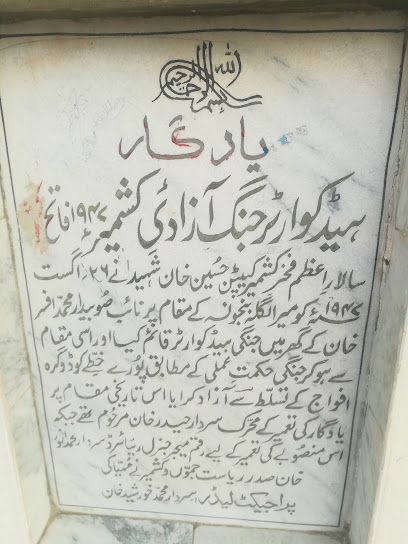 بسم الله الرحمن الرحیم
یادگار
ہیڈکوارٹر جنگ آزادیٔ کشمیر ۱۹۴۷ء فاتح
سالار اعظم فخر کشمیر کیپٹن حسین خان شہید نے ۲۶ اگست
۱۹۴۷ء کو میر الگلہ بنجونسہ کے مقام پر نائب صوبیدار محمد افسر
خان کے گھر میں جنگی ہیڈکوارٹر قائم کیا اور اسی مقام
سے ہو کر جنگی حکمت عملی کے مطابق پورے خطے کو ڈوگرہ
افواج کے تسلط سے آزاد کرایا اس تاریخی مقام پر
یادگار کی تعمیر کے محرک سردار حیدر خان مرحوم تھے جبکہ
اس منصوبے کی تعمیر کے لیے رقم میجر جنرل ریٹائرڈ سردار محمد انور
خان صدر ریاست جموں و کشمیر نے مہیا کی
پراجیکٹ لیڈر، سردار محمد خورشید خان